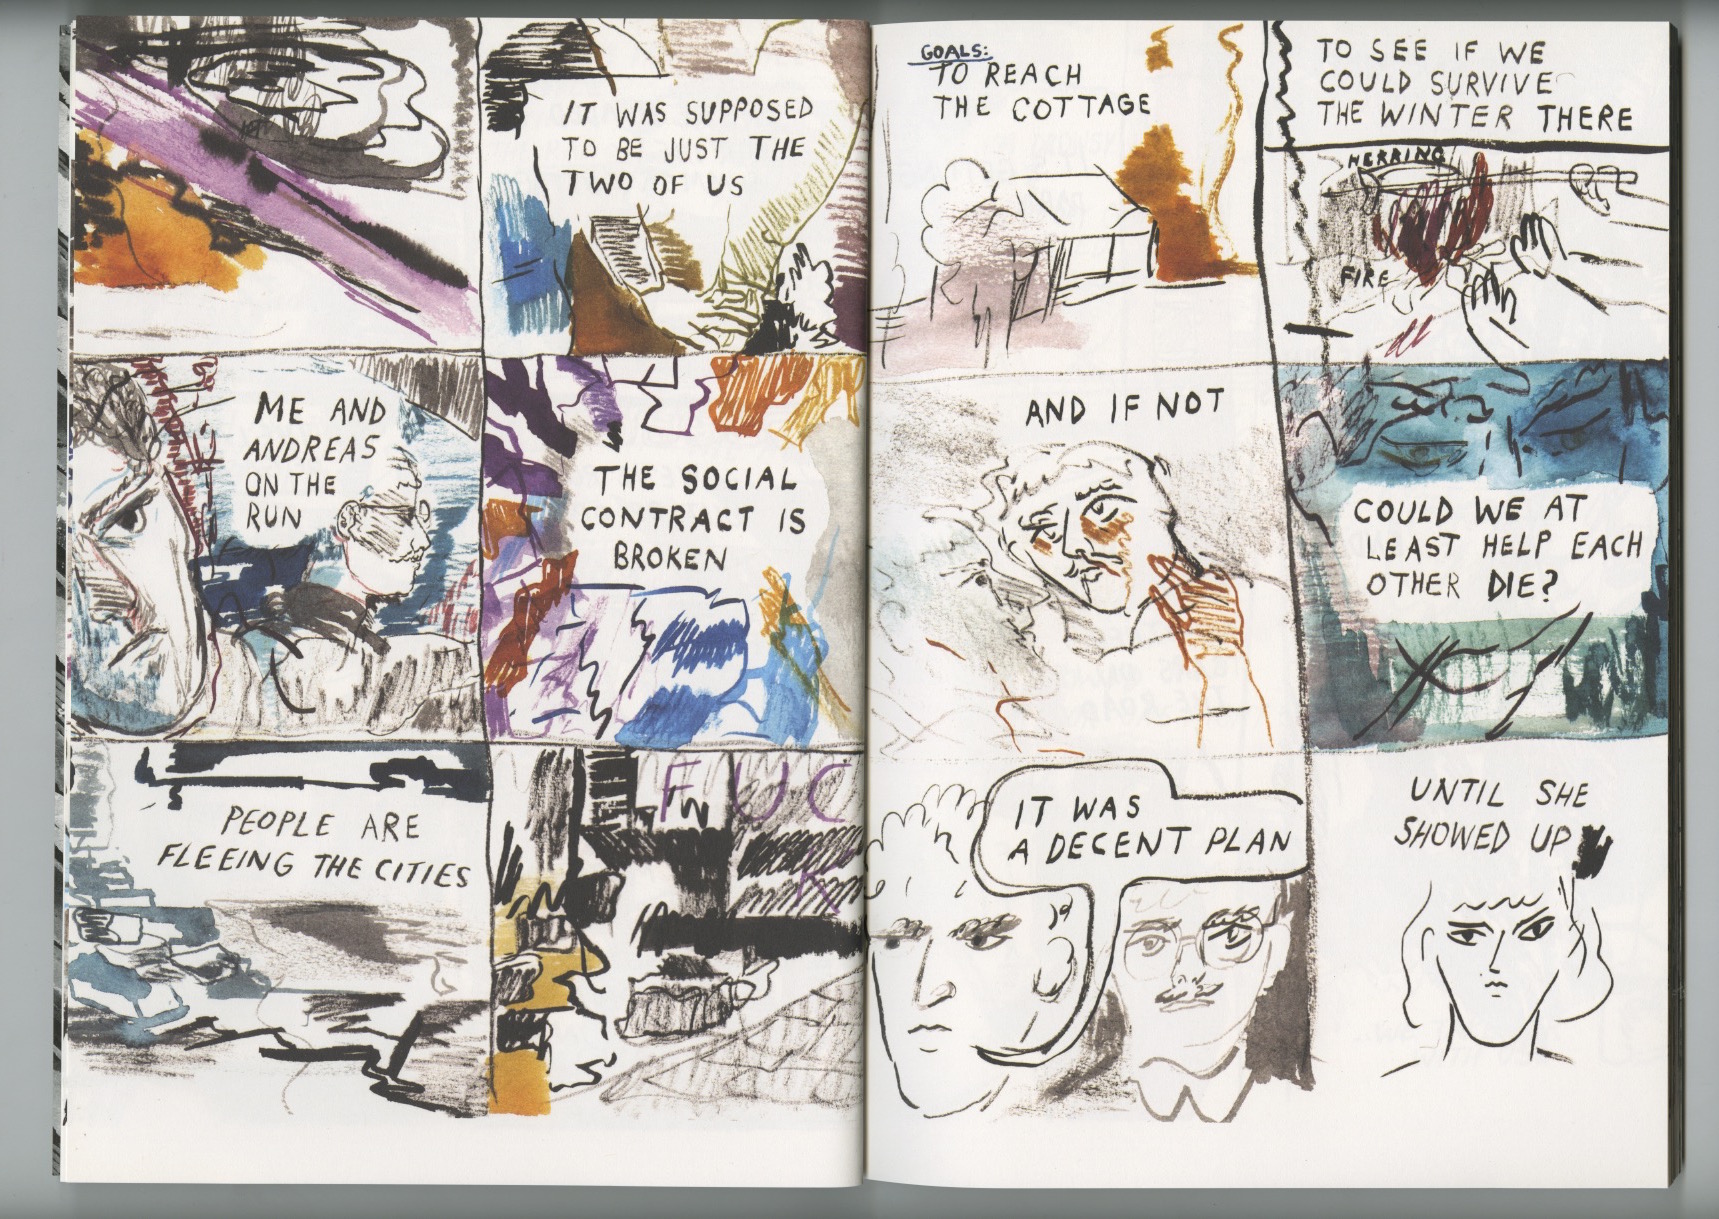 IT WAS SUPPOSED
TO BE JUST THE
TWO OF US
ME AND
ANDREAS
ON THE
RUN
THE SOCIAL
CONTRACT IS
BROKEN
PEOPLE ARE
FLEEING THE CITIES
FUC
K
GOALS:
TO REACH
THE COTTAGE
TO SEE IF WE
COULD SURVIVE
THE WINTER THERE
HERRING
FIRE
AND IF NOT
COULD WE AT
LEAST HELP EACH
OTHER DIE?
IT WAS
A DECENT PLAN
UNTIL SHE
SHOWED UP